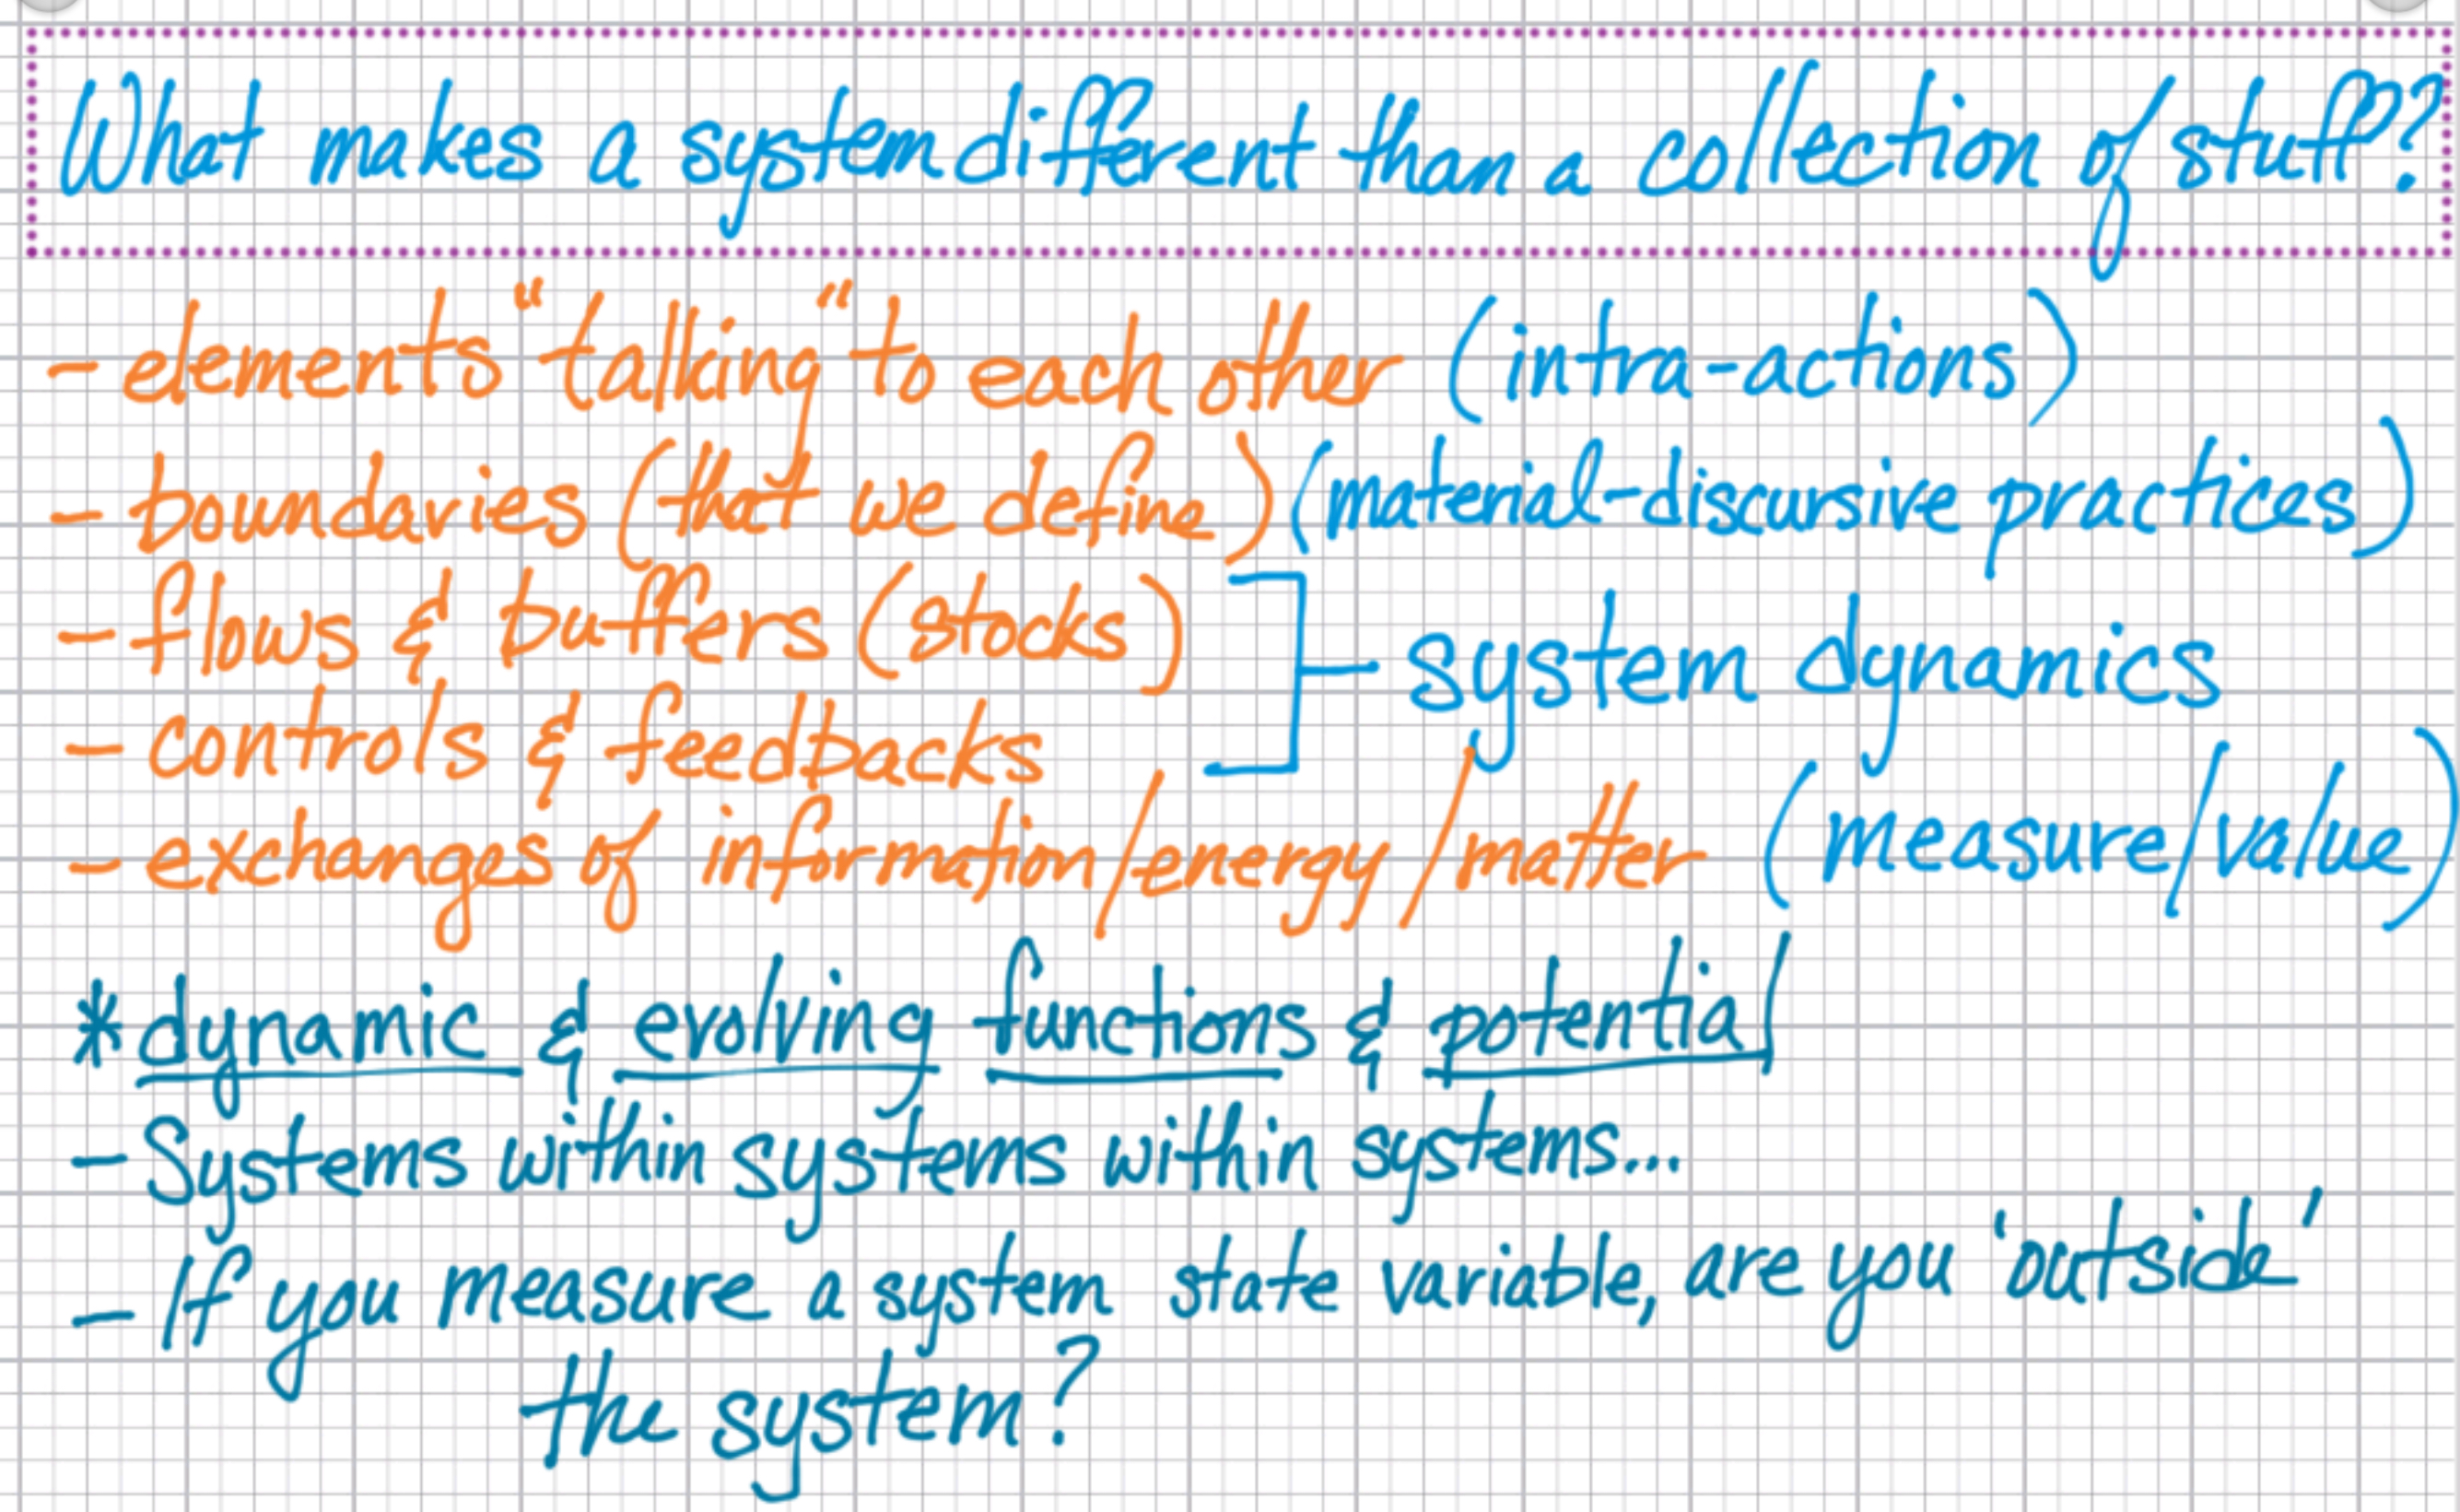 What makes a system different than a collection of stuff?
- elements "talking" to each other (intra-actions)
- boundaries (that we define) (material-discursive practices)
- flows & buffers (stocks)
system dynamics
- controls & feedbacks
- exchanges of information/energy/matter (measure/value)
* dynamic & evolving functions & potential
- Systems within systems within systems...
- If you measure a system state variable, are you 'outside'
the system?